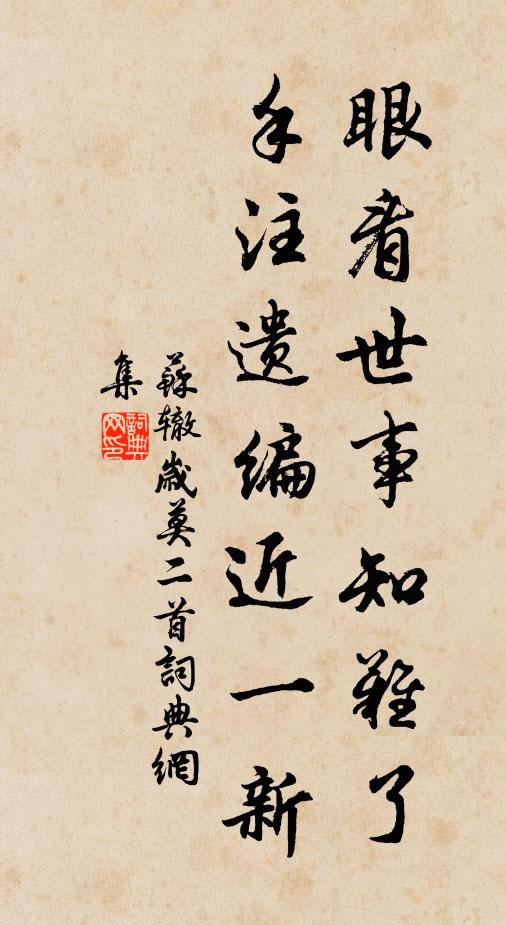 眼看世事知難了
手注遺編近一新
蘇轍歲莫二首詞典網
集
詞典
网印